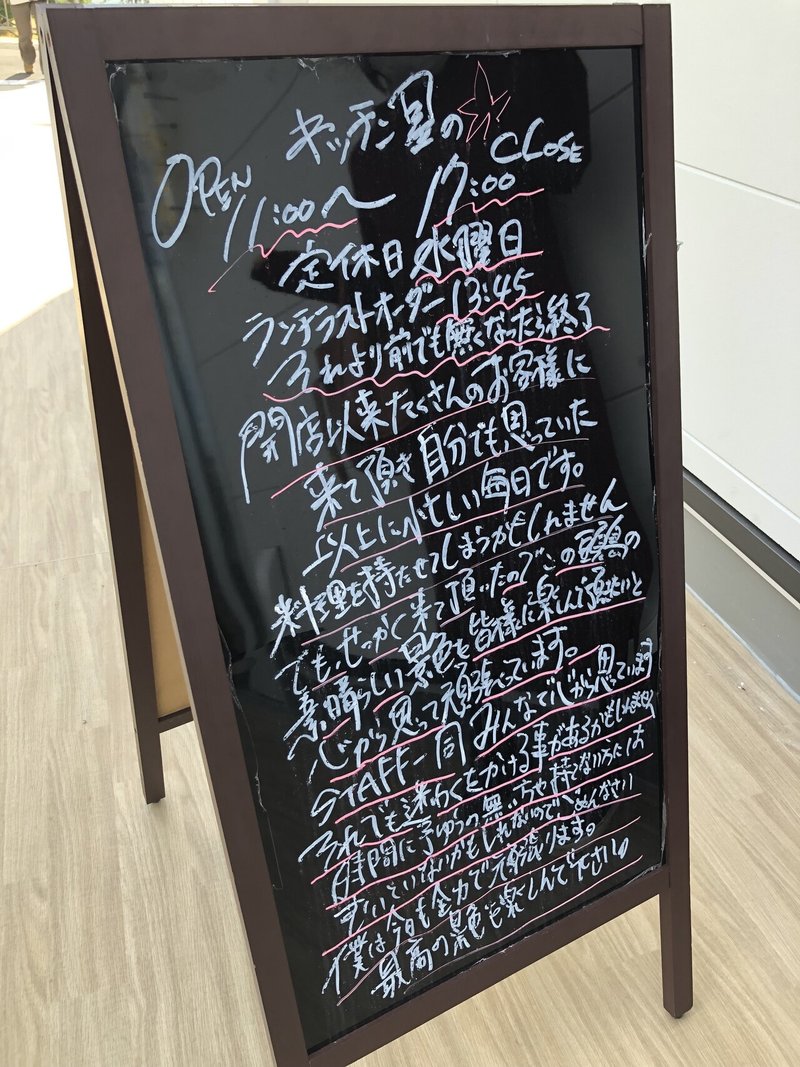 キッチン星の
OPEN 11:00〜 17:00 CLOSE
定休日 水曜日
ランチラストオーダー13:45
それより前でも無くなったら終了
開店以来たくさんのお客様に
来て頂き自分でも思っていた
以上に忙しい毎日です。
料理を持たせてしまうかもしれません
でも、せっかく来て頂いたのでこの
素晴らしい景色を皆様に楽しんで頂きたいと
心から思って頑張っています。
STAFF一同みんなで心から思っています
それでも迷わくをかける事があるかもしれません
時間に予ゆうの無い方や持てない方には
むいていないかもしれないのでごめんなさい
僕は今日も全力で頑張ります。
最高の景色も楽しんで下さい。